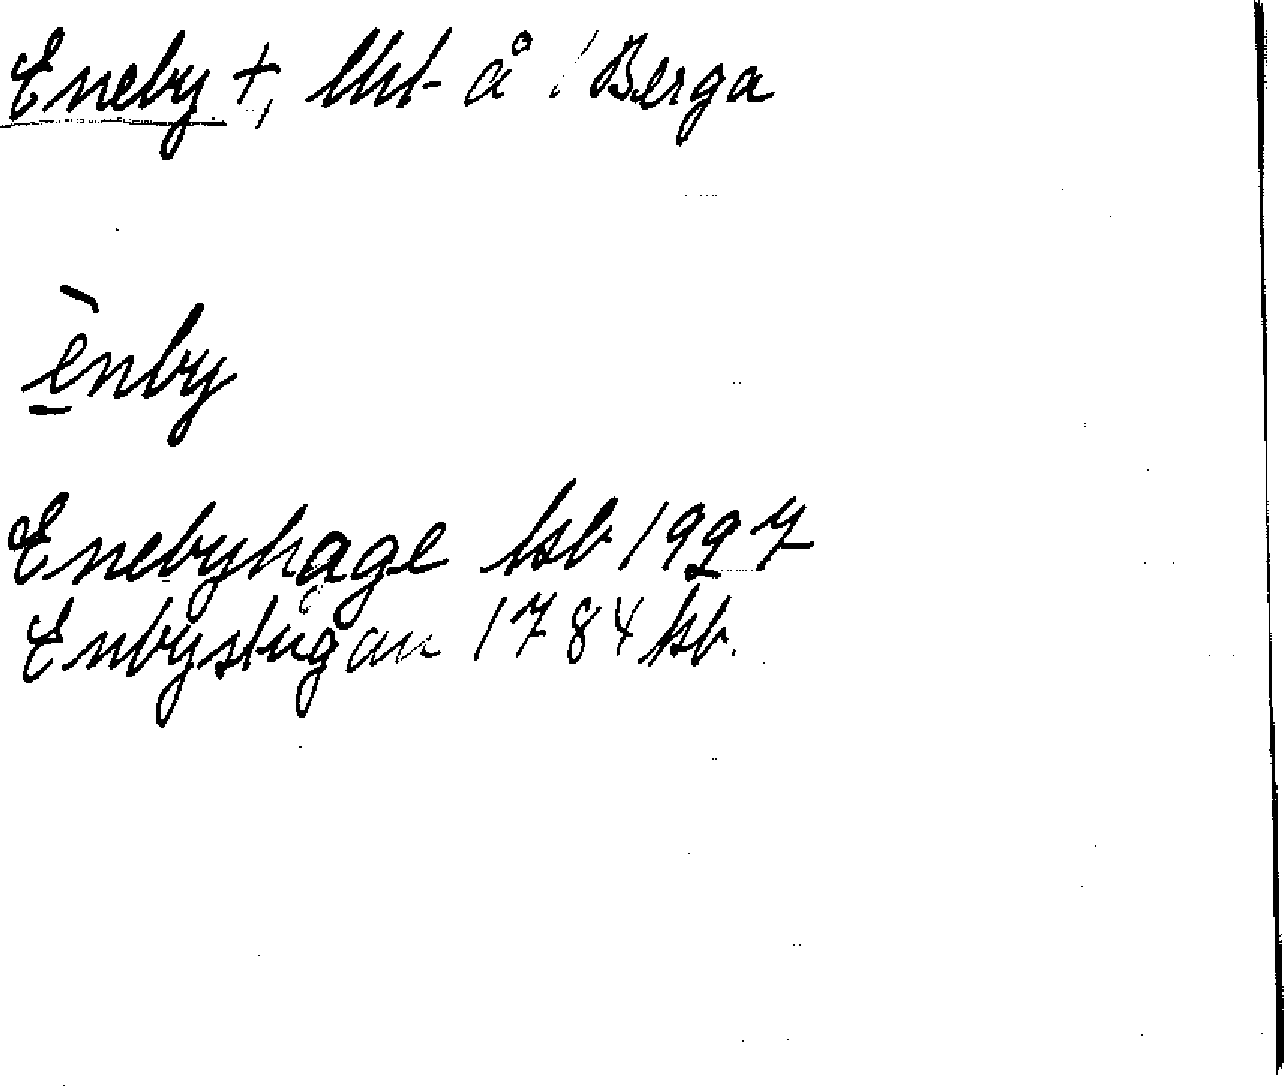 Eneby +, lht å 1/Berga
ènby
Enebyhage kb 1927
Enbystugan 1784 kb.